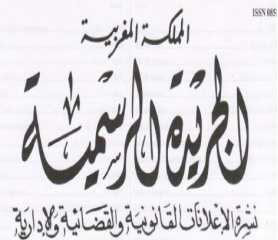 ISSN 085
المملكة المغربية
الجريدة الرسمية
نشرة الإعلانات القانونية والقضائية والإدارية